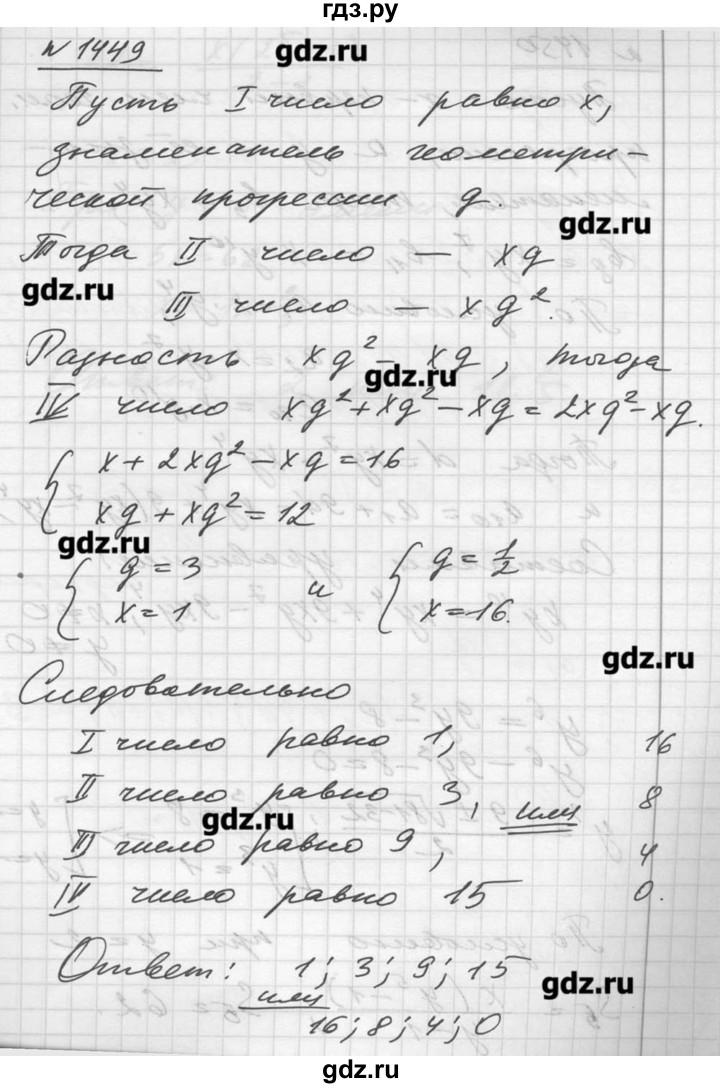 гдз.ру
№ 1449
gdz.ru
Пусть I число равно x,
знаменатель геометри-
ческой прогрессии q.
gdz.ru
Тогда II число — xq
gdz.ru
III число — xq².
Разность xq² - xq, тогда
gdz.ru
IV число xq²+xq²-xq=2xq²-xq.
x+2xq²-xq=16
xq+xq²=12
gdz.ru
q=3 и q=1/2
x=1 x=16.
gdz.ru
Следовательно
I число равно 1, 16
II число равно 3, или 8
gdz.ru
III число равно 9, 4
IV число равно 15 0.
Ответ: 1; 3; 9; 15
gdz.ru
или
16; 8; 4; 0
gdz.ru